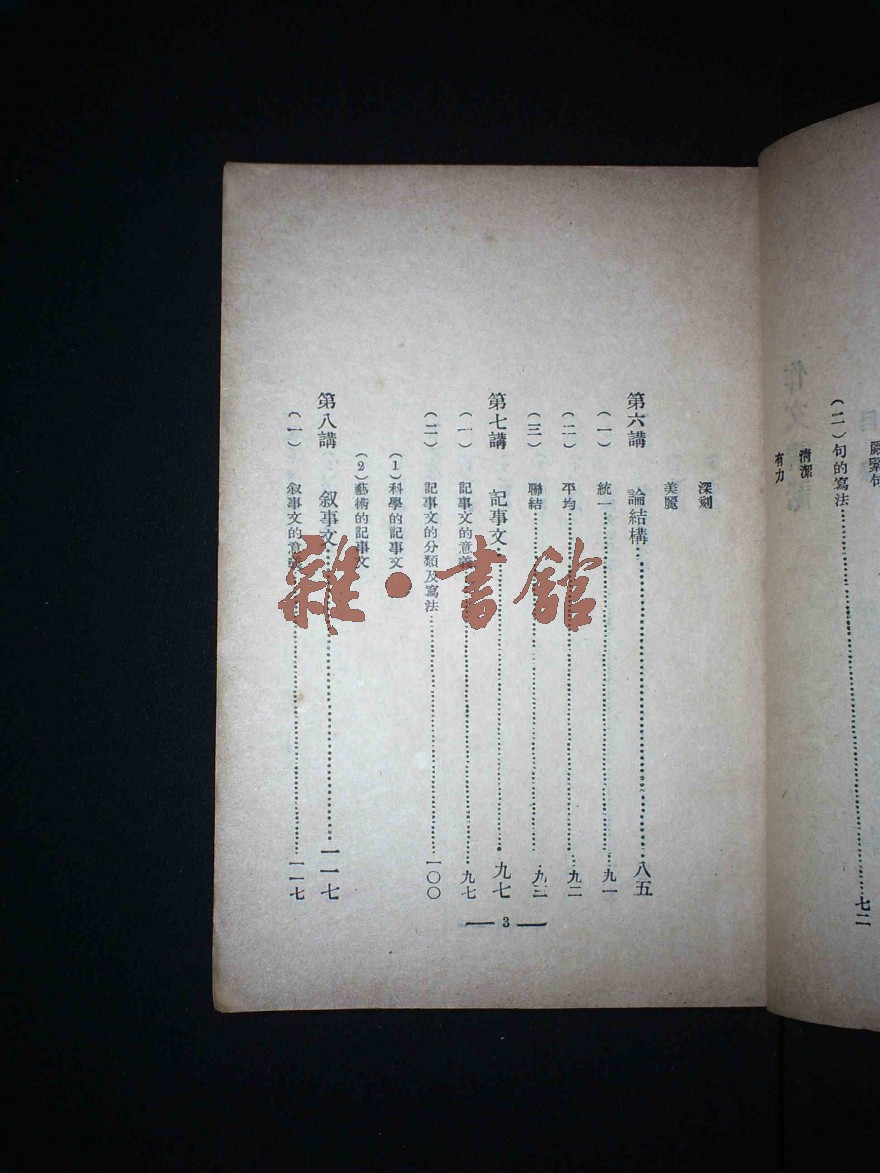 嚴緊句
(二)句的寫法……七二
清潔
有力
深刻
美麗
第六講 論結構……八五
(一) 統一……九一
(二) 平均……九二
(三) 聯結……九三
第七講 記事文……九七
(一) 記事文的意義……九七
(二) 記事文的分類及寫法……一〇〇
(1)科學的記事文
(2)藝術的記事文
第八講 叙事文……一一七
(一) 叙事文的意義……一一七
3
雜·書館